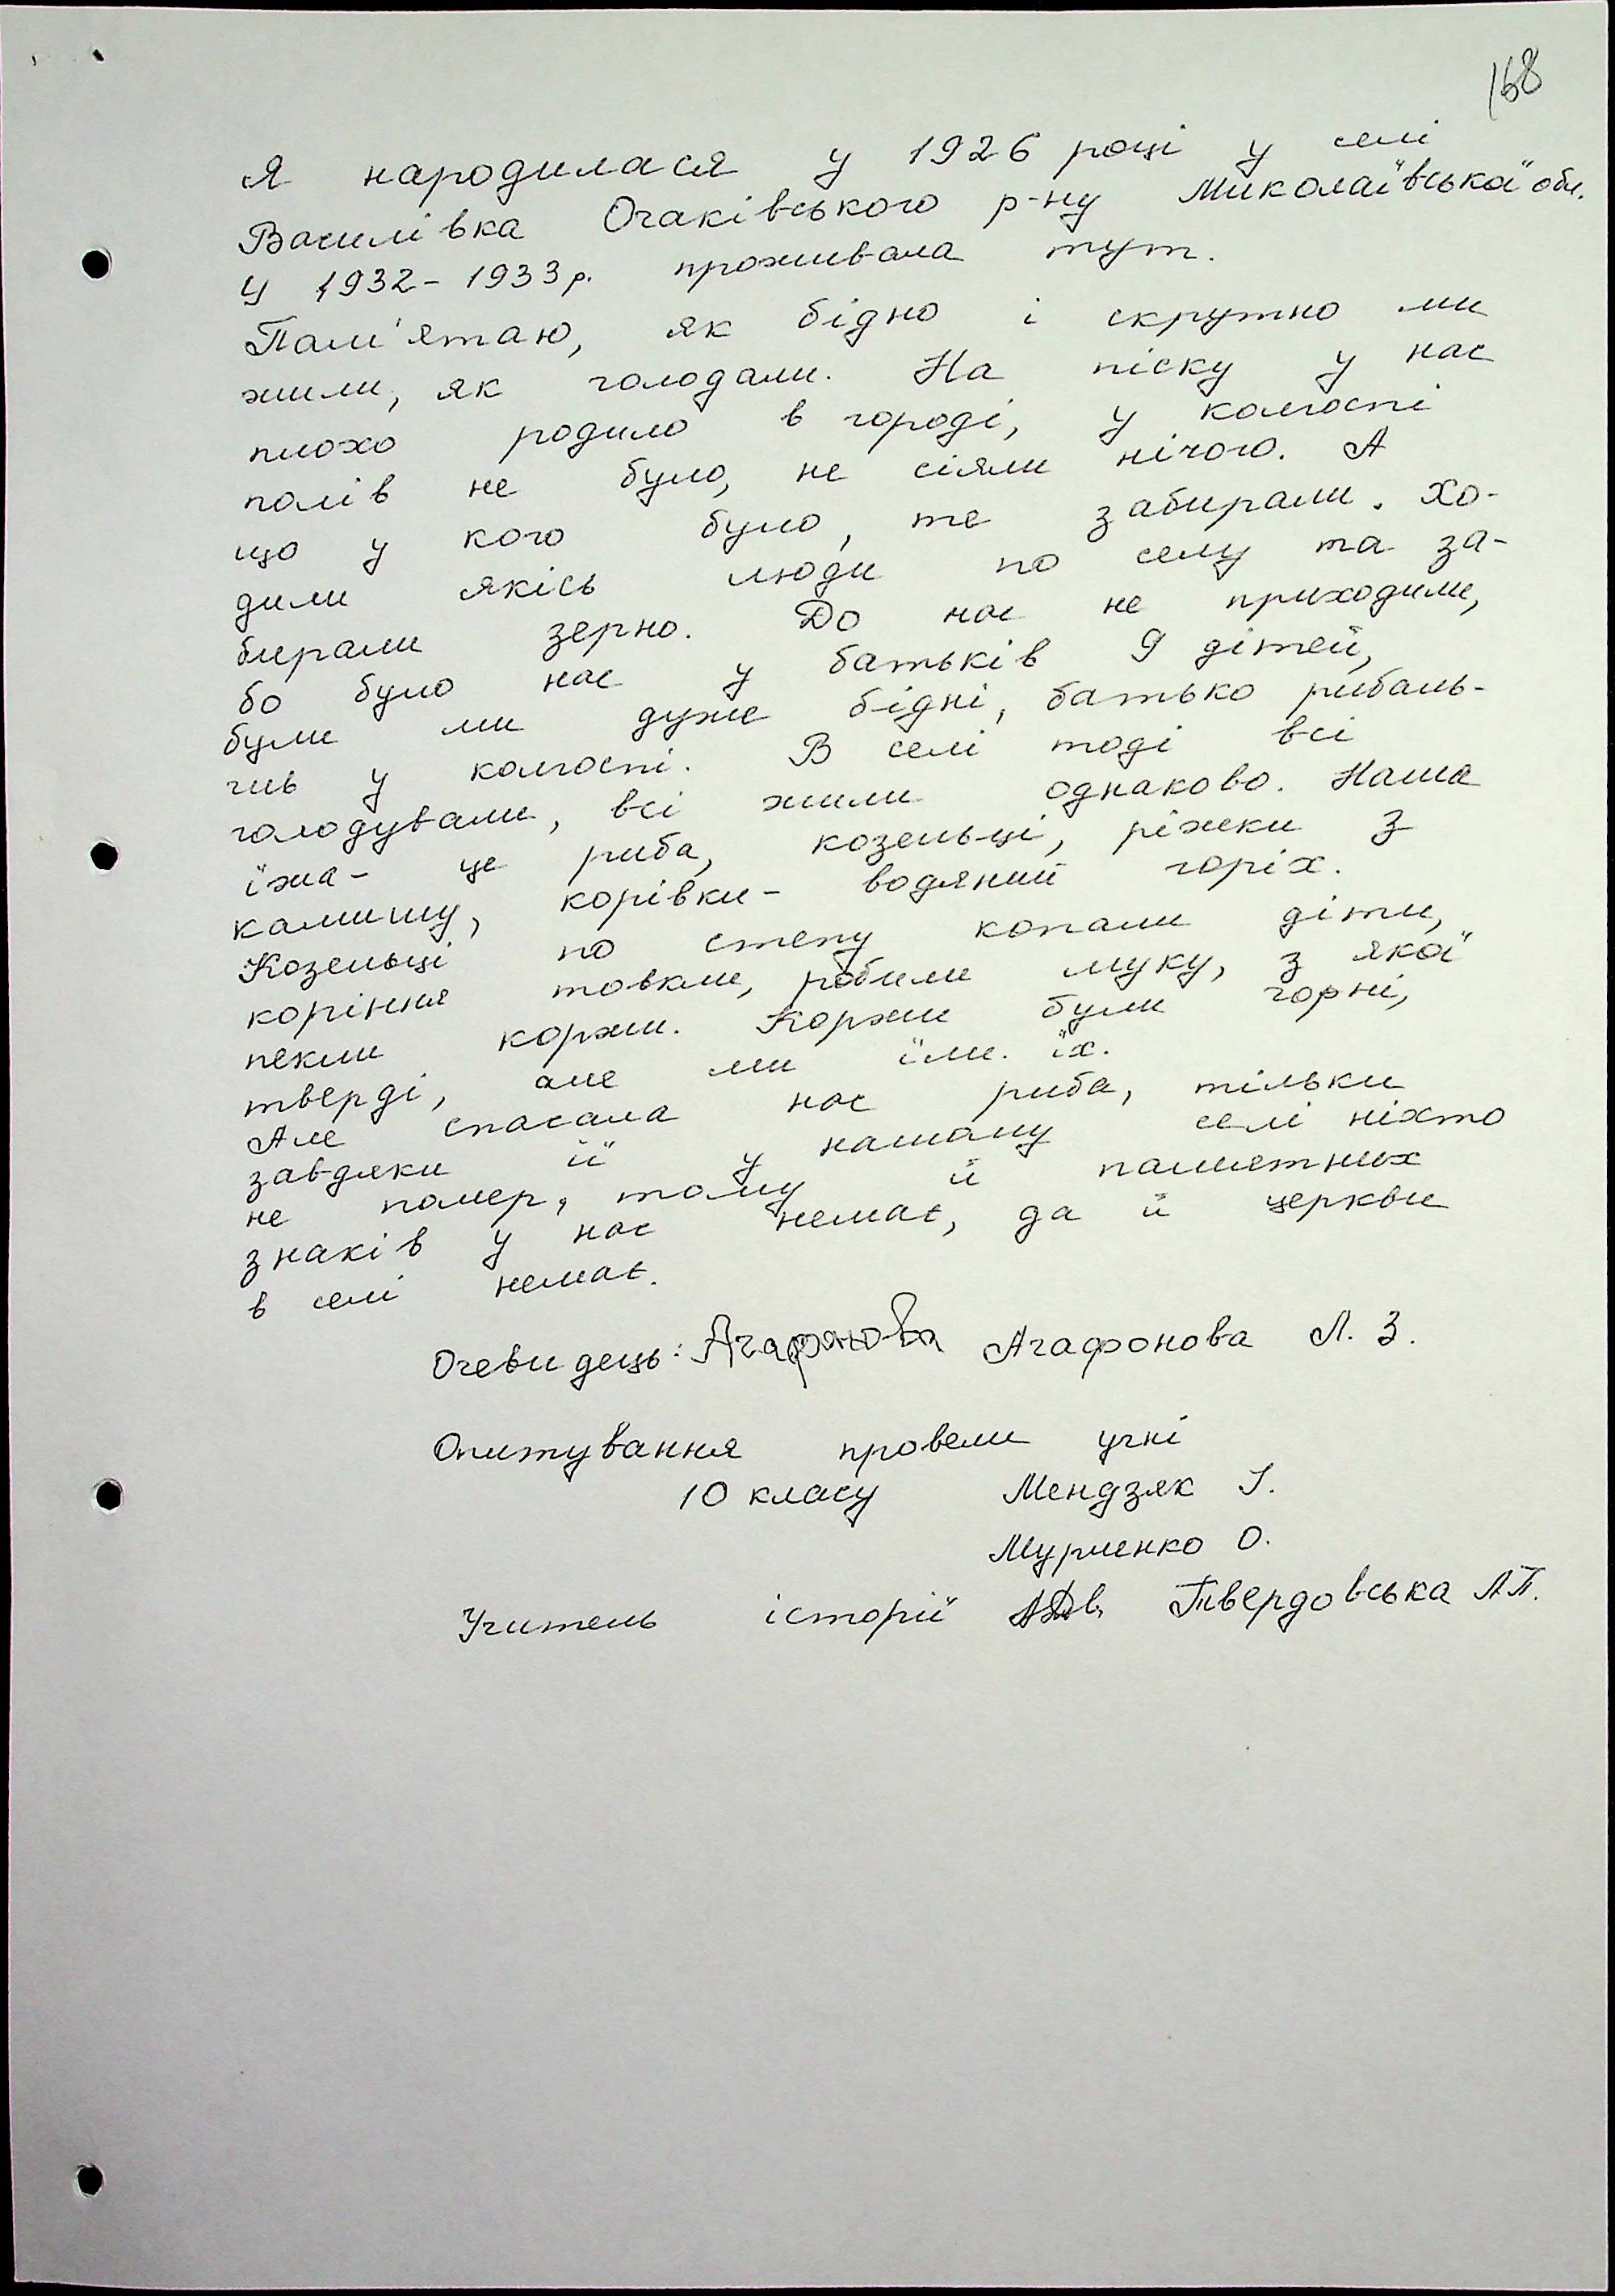 168
Я народилася у 1926 році у селі
Василівка Очаківського р-ну Миколаївської обл.
У 1932-1933 р. проживала тут.
Пам'ятаю, як бідно і скрутно ми
жили, як голодали. На піску у нас
плохо родило в городі, у колгоспі
полів не було, не сіяли нічого. А
що у кого було, те забирали. Хо-
дили якісь люди по селу та за-
бирали зерно. До нас не приходили,
бо було нас у батьків 9 дітей,
були ми дуже бідні, батько рибаль-
чив у колгоспі. В селі тоді всі
голодували, всі жили однаково. Наша
їжа- це риба, козельці, ріжки з
камишу, корівки- водяний горіх.
Козельці по степу копали діти,
коріння товкли, робили муку, з якої
пекли коржи. Коржи були чорні,
тверді, але ми їли. їх.
Але спасала нас риба, тільки
завдяки їй у нашому селі ніхто
не помер, тому й памятних
знаків у нас немає, да й церкви
в селі немає.
Очевидець: Агафонова Агафонова Л. З.
Опитування провели учні
10 класу Мендзяк І.
Мурленко О.
Учитель історії Твердовська Л.П.